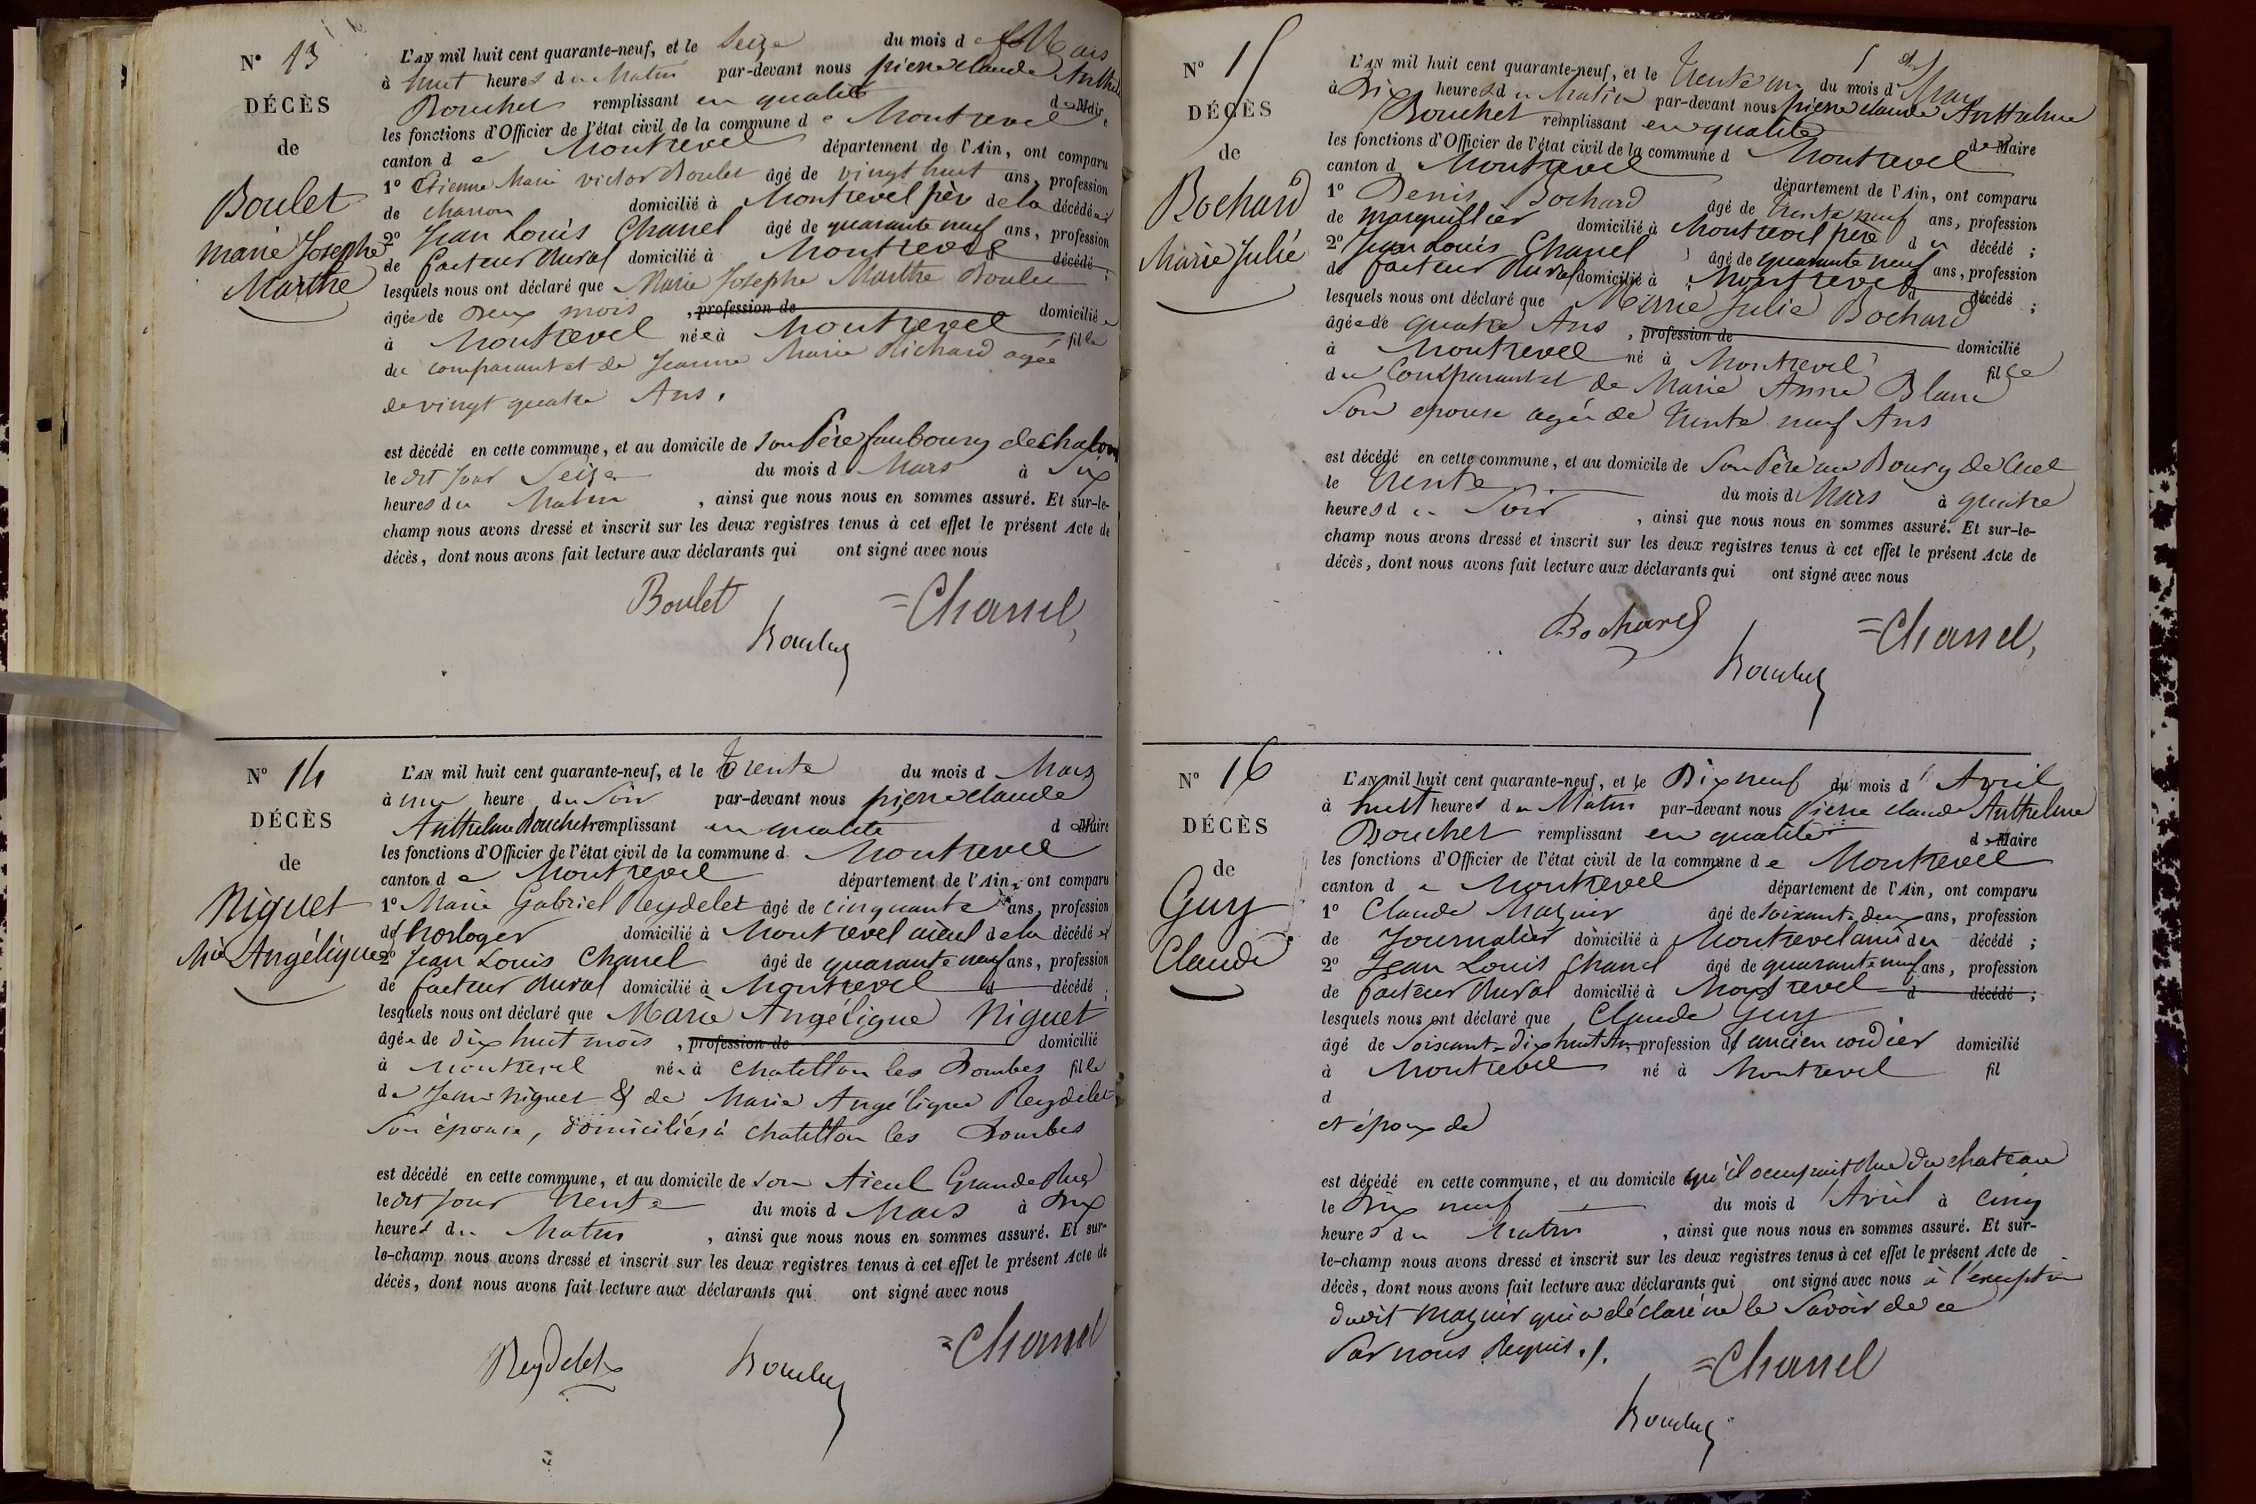 N° 13
DÉCÈS
de
Boulet
Marie Josephe
Marthe
L'AN mil huit cent quarante-neuf, et le Seize du mois de Mars
à huit heures du Matin par-devant nous pierre claude Anthelme
Bouchet remplissant en qualité de Maire
les fonctions d'Officier de l'état civil de la commune de Montrevel
canton de Montrevel département de l'Ain, ont comparu
1° Etienne Marie victor Boulet âgé de vingt huit ans, profession
de charron domicilié à Montrevel père de la décédée
2° Jean Louis Chanel âgé de quarante neuf ans, profession
de facteur Rural domicilié à Montrevel décédé ;
lesquels nous ont déclaré que Marie Josephe Marthe Boulet
âgée de Deux mois , profession de domicilié
à Montrevel née à Montrevel fille
du comparant et de Jeanne Marie Richard agée
de vingt quatre Ans.
est décédé en cette commune, et au domicile de son Père faubourg de chalon
le dit jour Seize du mois d Mars à Six
heures du Matin , ainsi que nous nous en sommes assuré. Et sur-le-
champ nous avons dressé et inscrit sur les deux registres tenus à cet effet le présent Acte de
décès, dont nous avons fait lecture aux déclarants qui ont signé avec nous
Boulet =Chanel,
Bouchet
N° 14
DÉCÈS
de
Niguet
Mie Angélique
L'AN mil huit cent quarante-neuf, et le Trente du mois d Mars
à une heure du Soir par-devant nous pierre claude
Anthelme Bouchet remplissant en qualité de Maire
les fonctions d'Officier de l'état civil de la commune d Montrevel
canton de Montrevel département de l'Ain, ont comparu
1° Marie Gabriel Reydelet âgé de cinquante ans, profession
de horloger domicilié à Montrevel aieul de la décédée
2° Jean Louis Chanel âgé de quarante neuf ans, profession
de facteur Rural domicilié à Montrevel d décédé ;
lesquels nous ont déclaré que Marie Angélique Niguet
âgée de dix huit mois , profession de domicilié
à Montrevel née à Chatillon les Dombes fille
de Jean Niguet & de Marie Angélique Reydelet
Son épouse, domiciliés à Chatillon les Dombes
est décédé en cette commune, et au domicile de son Aieul Grande Rue
le dit jour Trente du mois d Mars à Dix
heures du Matin , ainsi que nous nous en sommes assuré. Et sur-
le-champ nous avons dressé et inscrit sur les deux registres tenus à cet effet le présent Acte de
décès, dont nous avons fait lecture aux déclarants qui ont signé avec nous
Reydelet Bouchet =Chanel
N° 15
DÉCÈS
de
Bochard
Marie Julie
L'AN mil huit cent quarante-neuf, et le Trente un du mois d Mars
à Dix heures du Matin par-devant nous pierre claude Anthelme
Bouchet remplissant en qualité de Maire
les fonctions d'Officier de l'état civil de la commune d Montrevel
canton d Montrevel département de l'Ain, ont comparu
1° Denis Bochard âgé de Trente neuf ans, profession
de marguillier domicilié à Montrevel père du décédé ;
2° Jean Louis Chanel âgé de quarante neuf ans, profession
de facteur Rural domicilié à Montrevel d décédé ;
lesquels nous ont déclaré que Marie Julie Bochard
âgée de quatre Ans , profession de domicilié
à Montrevel né à Montrevel fille
du Comparant et de Marie Anne Blanc
Son epouse agée de Trente neuf Ans
est décédé en cette commune, et au domicile de Son Père au Bourg de Cuet
le Trente du mois d Mars à quatre
heures du Soir , ainsi que nous nous en sommes assuré. Et sur-le-
champ nous avons dressé et inscrit sur les deux registres tenus à cet effet le présent Acte de
décès, dont nous avons fait lecture aux déclarants qui ont signé avec nous
Bochard =Chanel,
Bouchet
N° 16
DÉCÈS
de
Guy
Claude
L'AN mil huit cent quarante-neuf, et le Dix neuf du mois d' Avril
à huit heures du Matin par-devant nous Pierre claude Anthelme
Bouchet remplissant en qualité de Maire
les fonctions d'Officier de l'état civil de la commune de Montrevel
canton de Montrevel département de l'Ain, ont comparu
1° Claude Mazuir âgé de soixante deux ans, profession
de Journalier domicilié à Montrevel ami du décédé ;
2° Jean Louis Chanel âgé de quarante neuf ans, profession
de facteur Rural domicilié à Montrevel d décédé ;
lesquels nous ont déclaré que Claude Guy
âgé de Soixante-Dix huit Ans profession d'ancien cordier domicilié
à Montrevel né à Montrevel fil
d
et époux de
est décédé en cette commune, et au domicile qu'il occupait Rue du chateau
le Dix neuf du mois d Avril à cinq
heures du Matin , ainsi que nous nous en sommes assuré. Et sur-
le-champ nous avons dressé et inscrit sur les deux registres tenus à cet effet le présent Acte de
décès, dont nous avons fait lecture aux déclarants qui ont signé avec nous à l'exception
dudit Mazuir qui a déclaré ne le Savoir de ce
Par nous Requis ./.
=Chanel
Bouchet